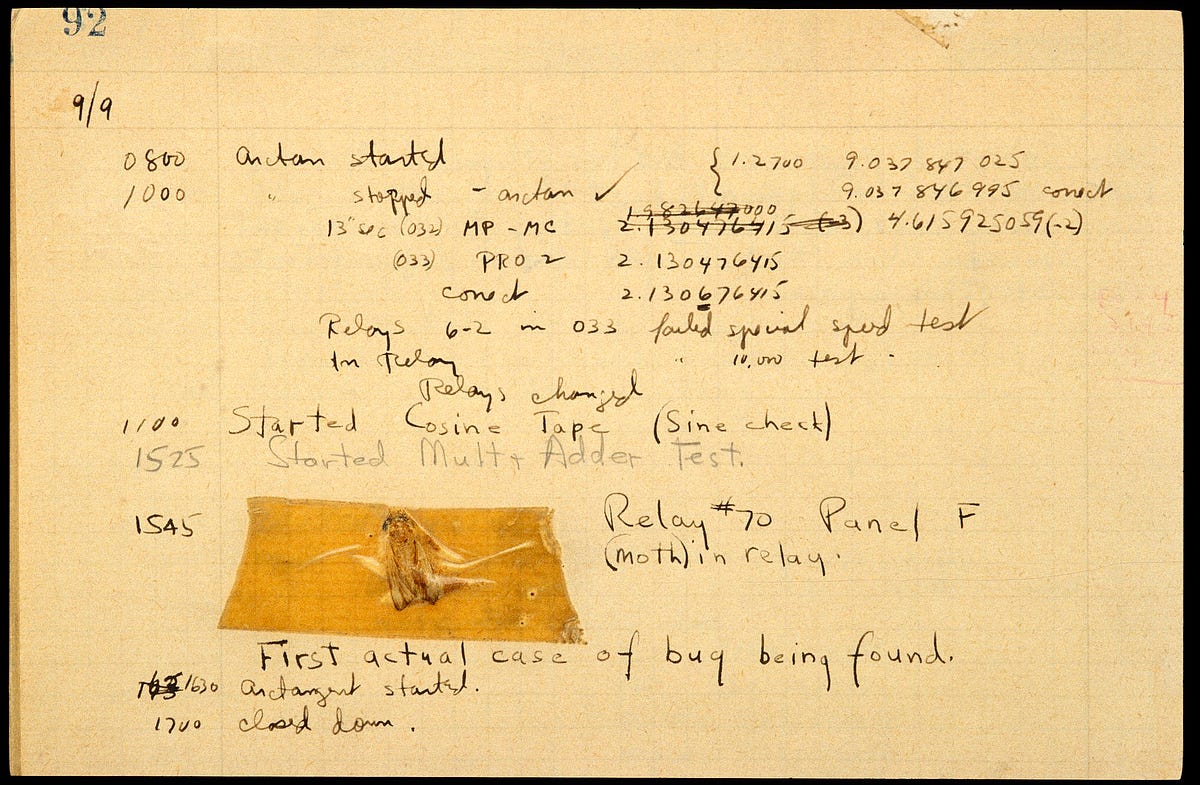 92
9/9
0800 Arctan started { 1.2700 9.037 847 025
1000 " stopped - arctan ✓ 9.037 846 995 correct
1.982647000
13"sec (032) MP - MC 2.130476415 (-3) 4.615925059(-2)
(033) PRO 2 2.130476415
correct 2.130676415
Relays 6-2 in 033 failed special speed test
In Relay " 10,000 test .
Relays changed
1100 Started Cosine Tape (Sine check)
1525 Started Mult + Adder Test.
1545 Relay #70 Panel F
(moth) in relay.
First actual case of bug being found.
1630 arctangent started.
1700 closed down.